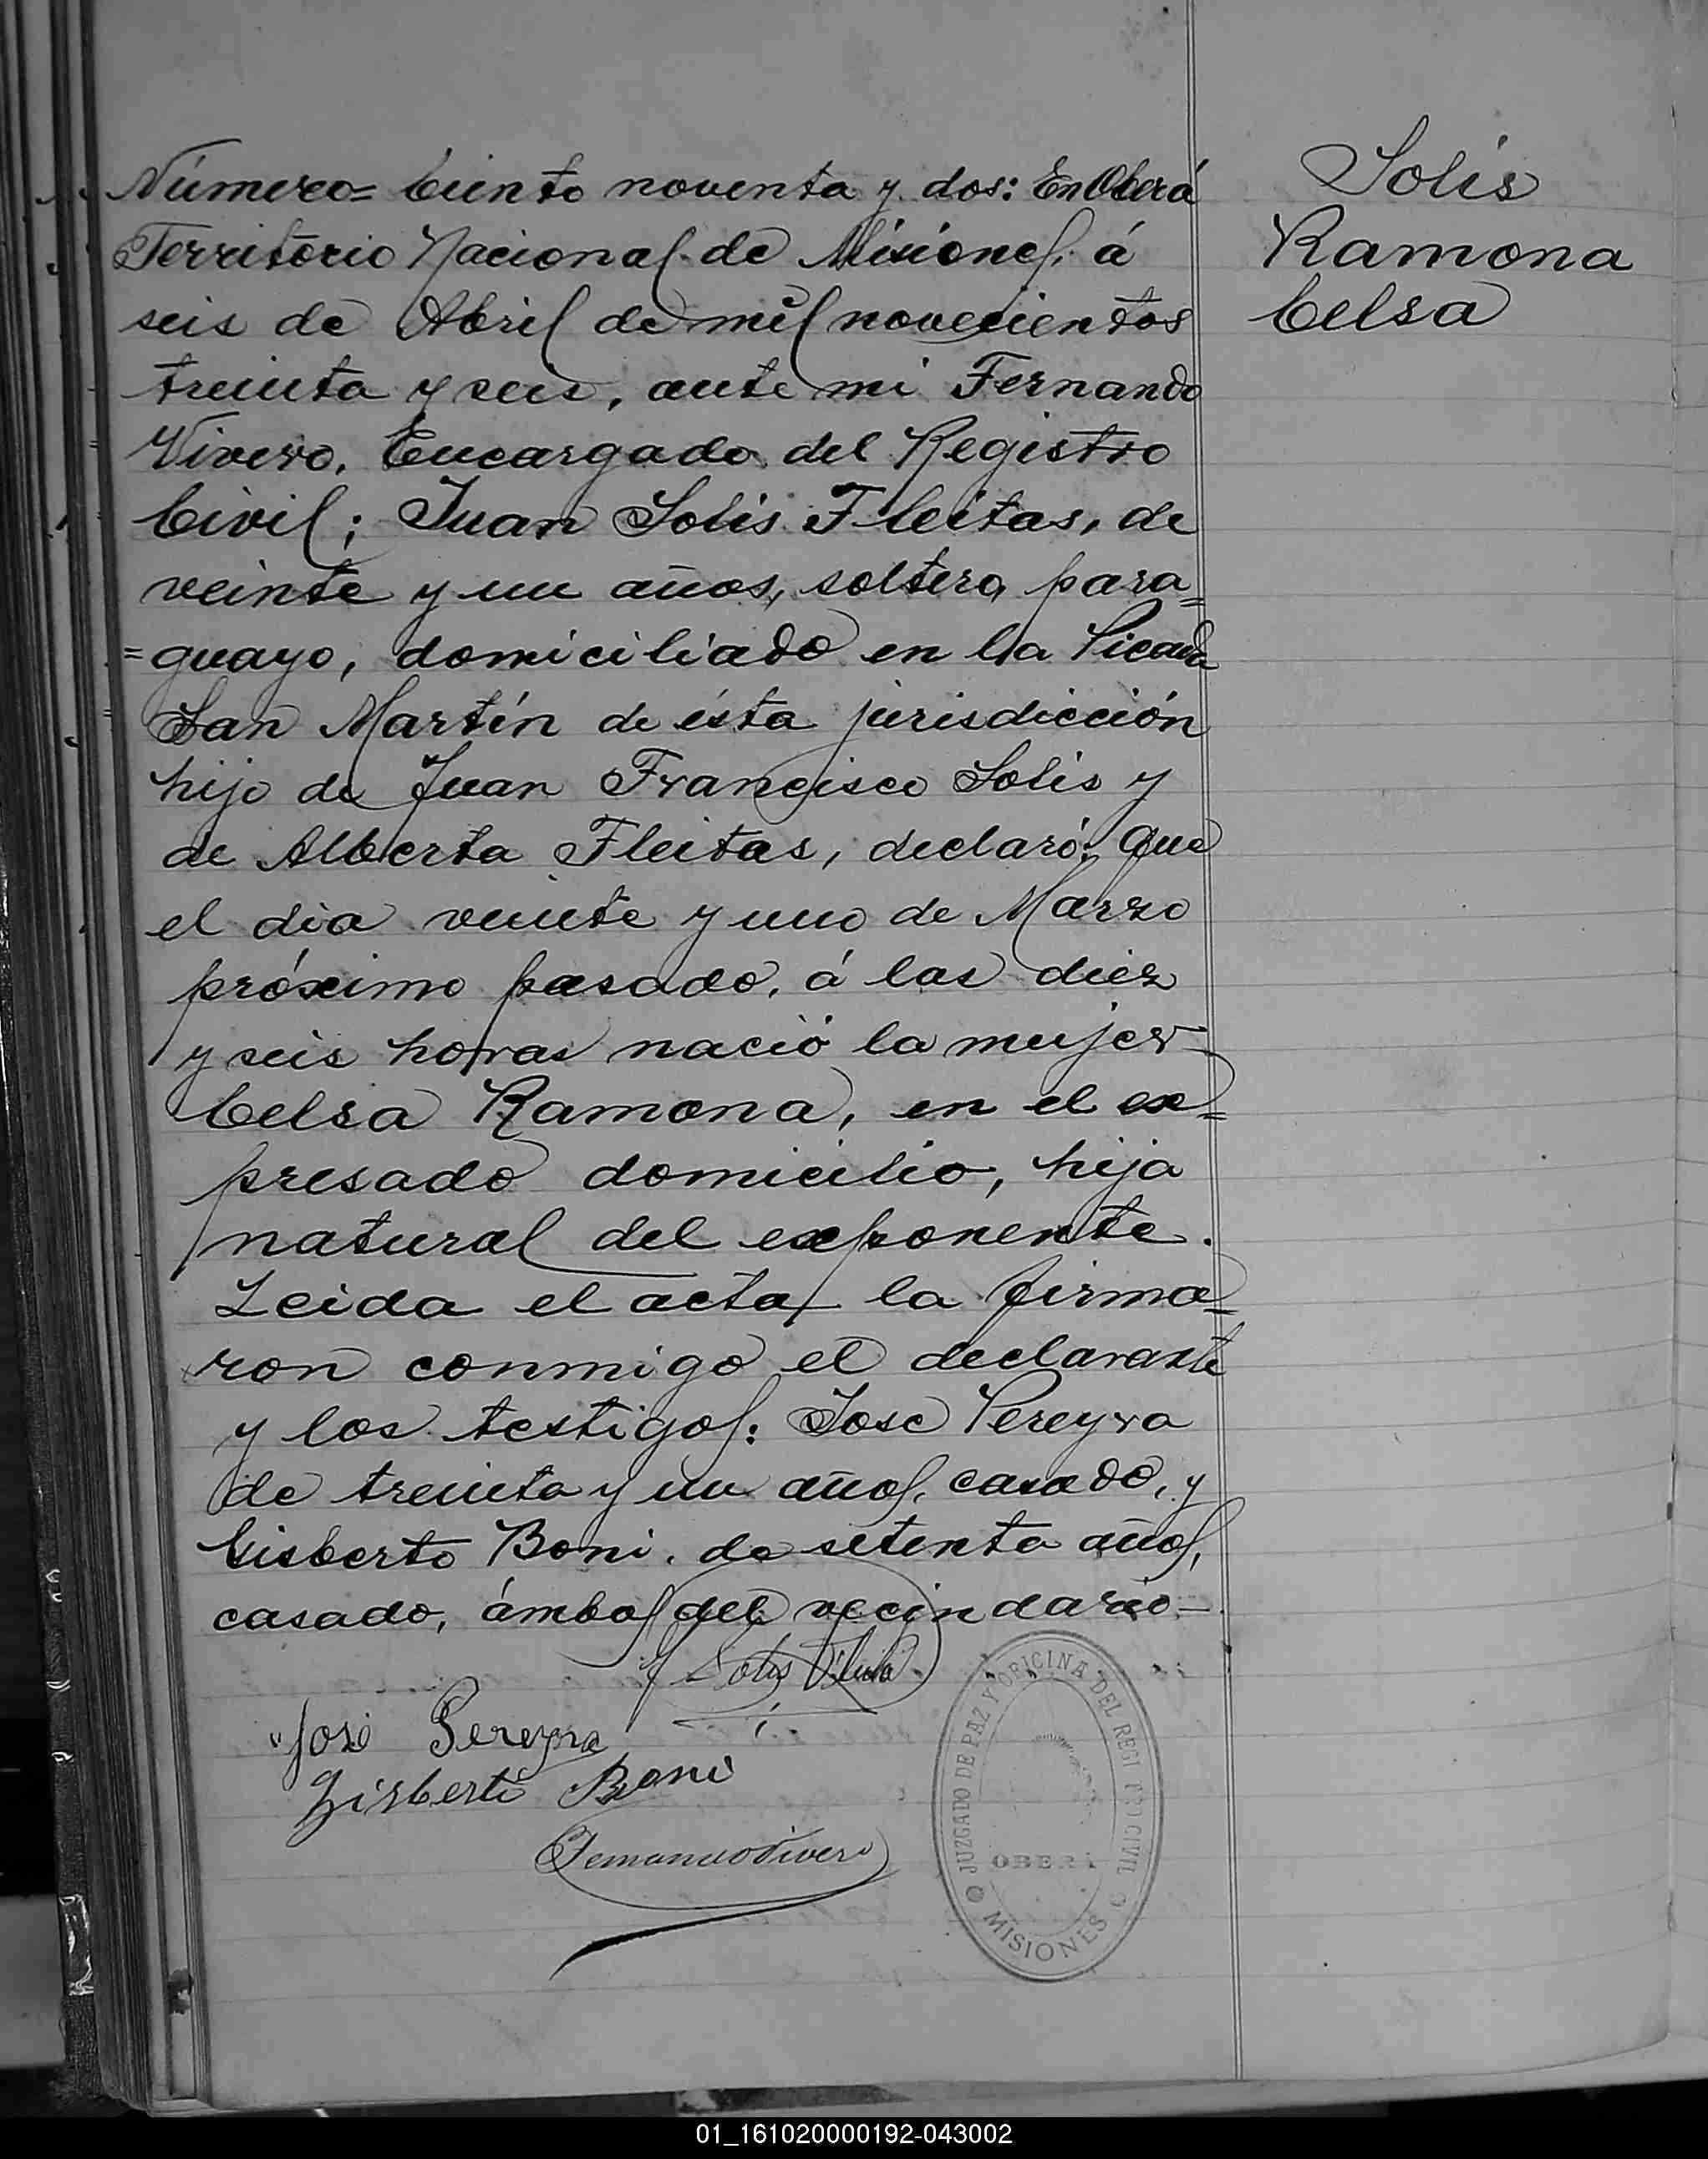 Número= Ciento noventa y dos: En Oberá
Territorio Nacional de Misiones, á
seis de Abril de mil novecientos
treinta y seis, ante mi Fernando
Vivero, Encargado del Registro
Civil; Juan Solis Fleitas, de
veinte y un años, soltero, para=
=guayo, domiciliado en la Picada
San Martín de ésta jurisdicción
hijo de Juan Francisco Solis y
de Alberta Fleitas, declaró: Que
el dia veinte y uno de Marzo
próximo pasado, á las diez
y seis horas nació la mujer
Celsa Ramona, en el ex=
presado domicilio, hija
natural del exponente.
Leida el acta, la firma=
ron conmigo el declarante
y los testigos: Jose Pereyra
de treinta y un años, casado, y
Gisberto Boni, de setenta años,
casado, ámbos del vecindario—
Solis
Ramona
Celsa
J Solis
José Pereyra
Gisberti Boni
Fernando Vivero
JUZGADO DE PAZ Y OFICINA DEL REGISTRO CIVIL
OBERÁ
MISIONES
01_161020000192-043002